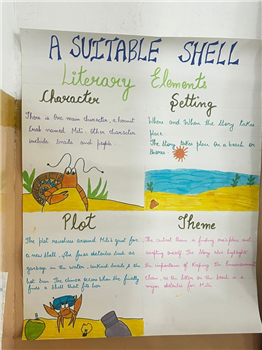 A SUITABLE SHELL
Literary Elements
Character
There is the main character, a hermit
crab named Mili. Other character
include snails and people.
Setting
Where and When the Story takes
place
The Story takes place on a beach or
shores
Plot
The plot revolves around Mili's quest for
a new shell. She faces obstacles such as
garbage in the water, unkind snails & the
lost him. The climax occurs when she finally
finds a shell that fits her
Theme
The central theme is finding one's place and
accepting oneself. The Story also highlights
the importance of keeping the Environment
clean, as the litter on the beach is a
major obstacle for Mili.